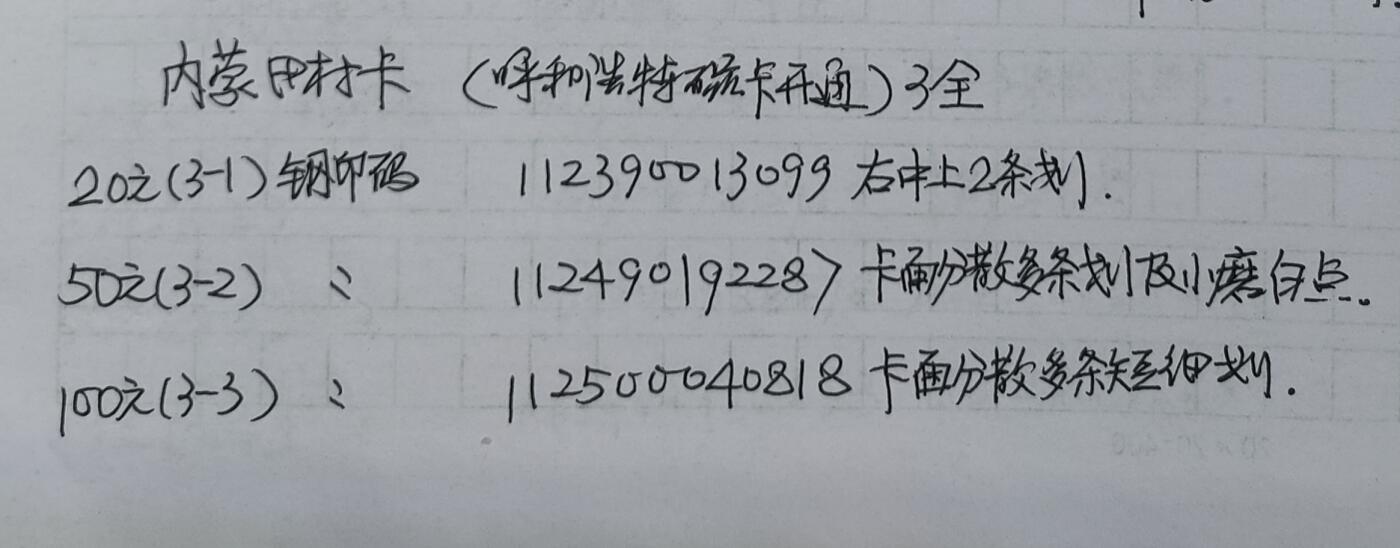 内蒙田村卡 (呼和浩特磁卡开通) 3全
20元(3-1) 钢印码 112390013099 右中上2条划.
50元(3-2) 〃 112490192287 卡面分散多条划及小磨白点.
100元(3-3) 〃 112500040818 卡面分散多条短细划.